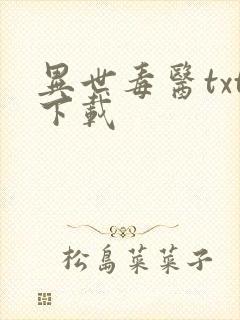 異世毒醫txt
下載
松島菜菜子